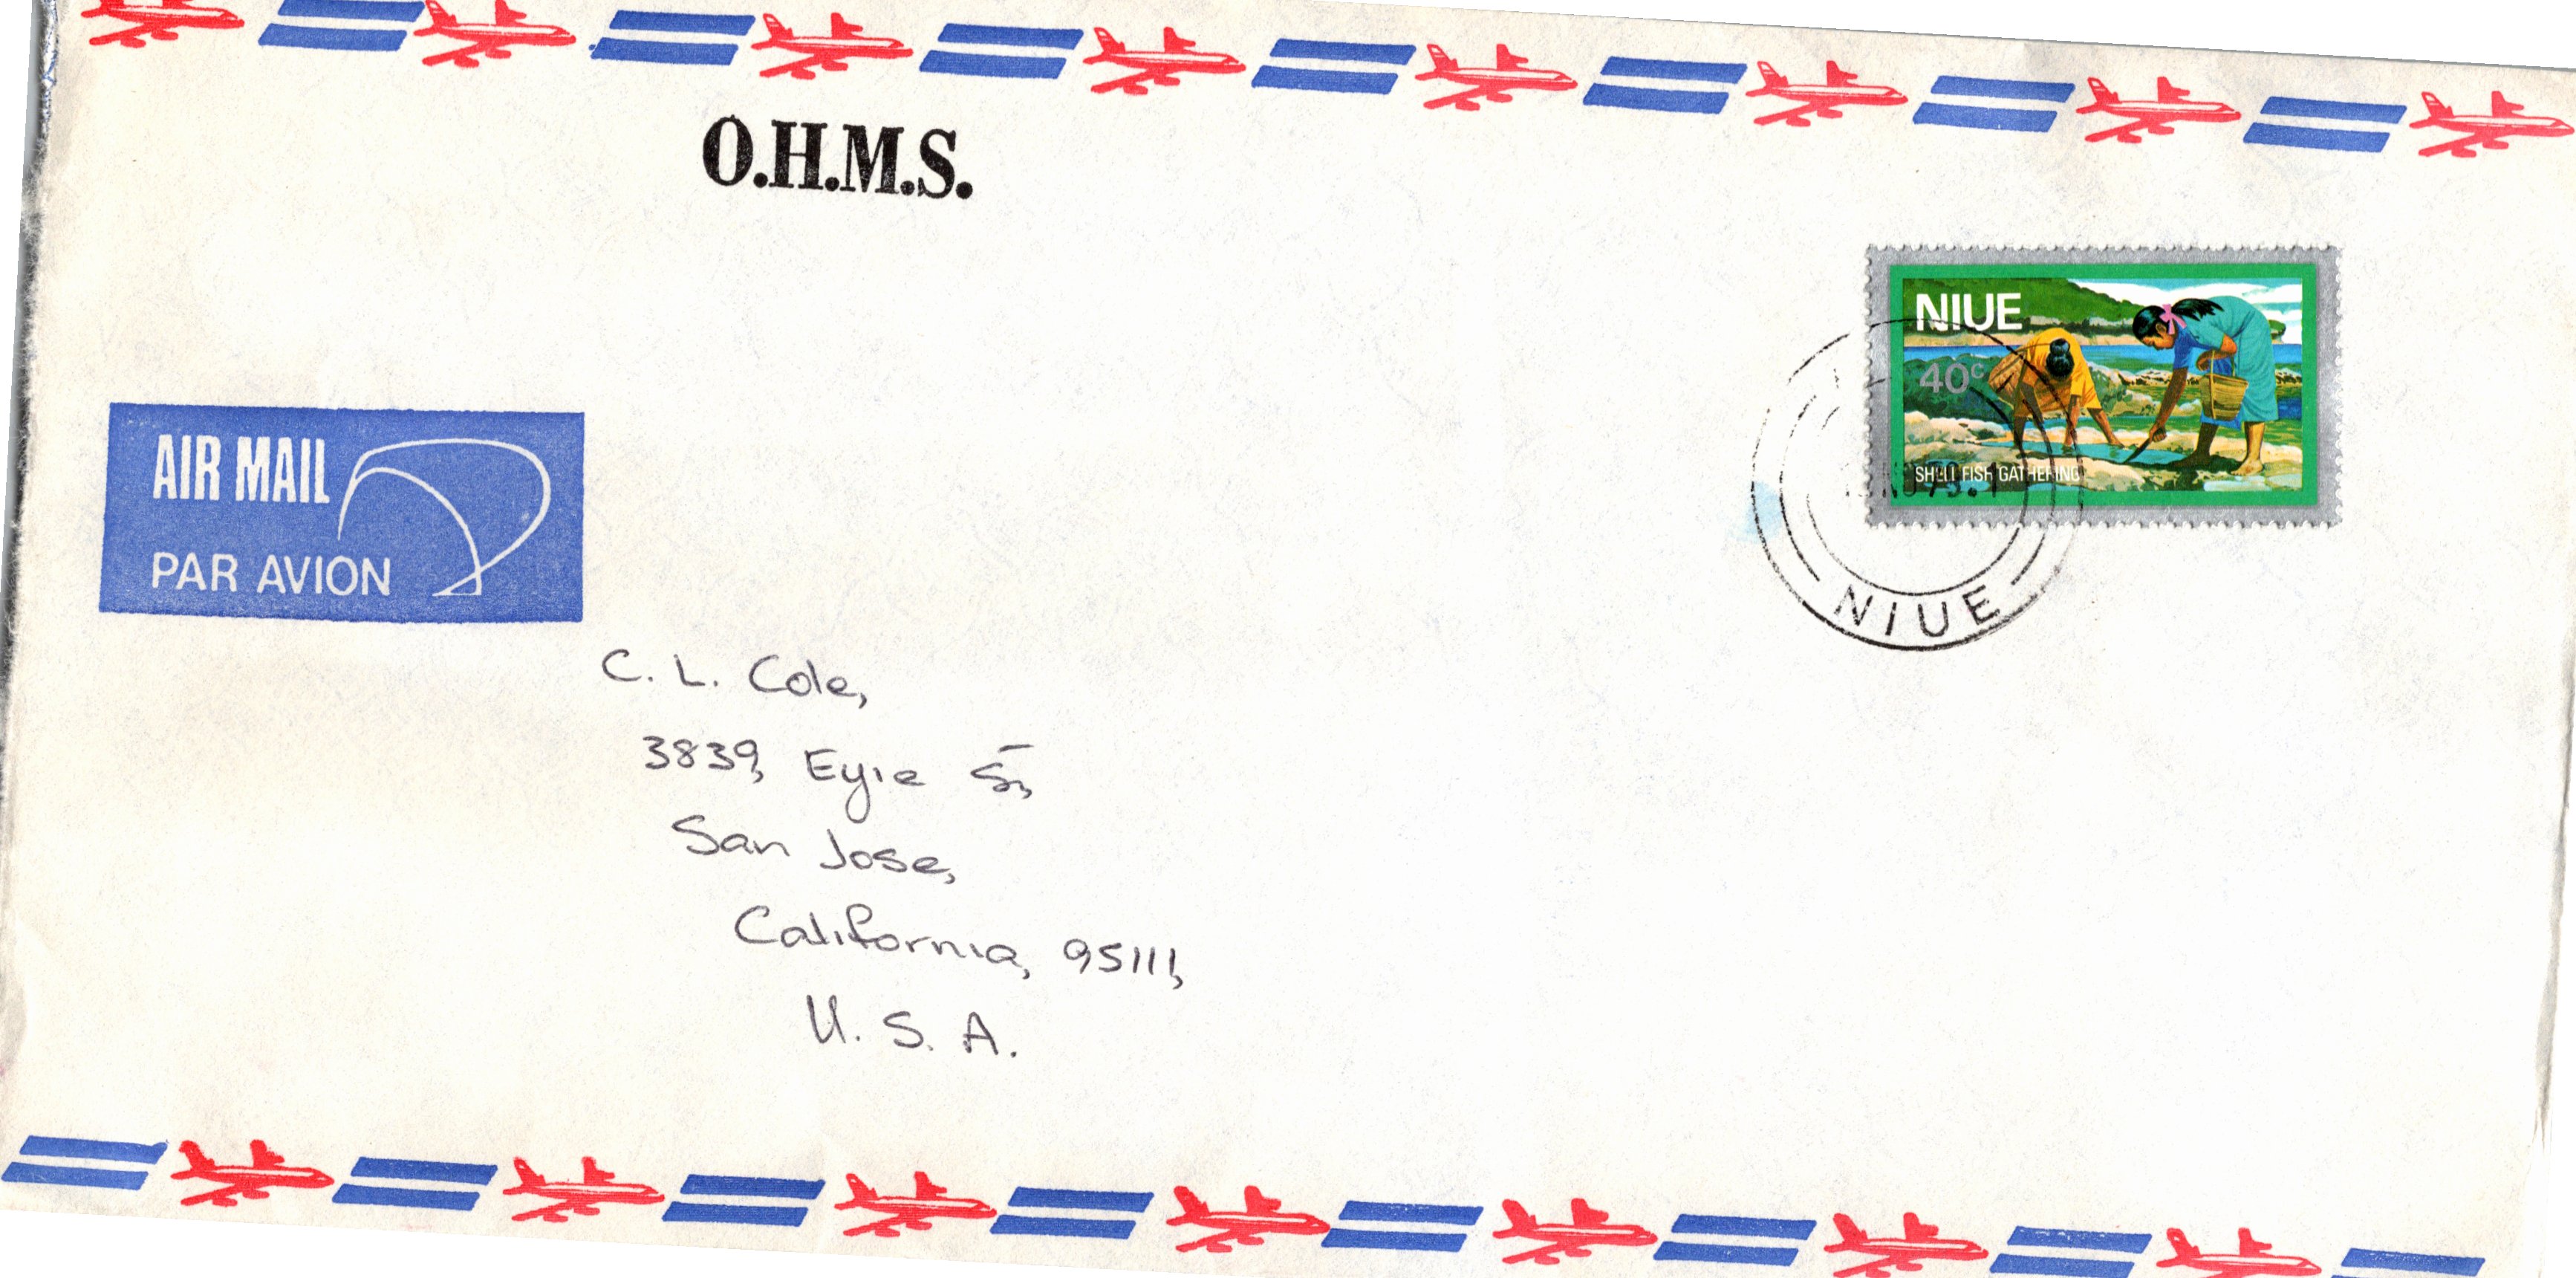 O.H.M.S.
NIUE
40c
SHELL FISH GATHERING
NIUE
AIR MAIL
PAR AVION
C. L. Cole,
3839, Eyrie St,
San Jose,
California, 95111,
U. S. A.